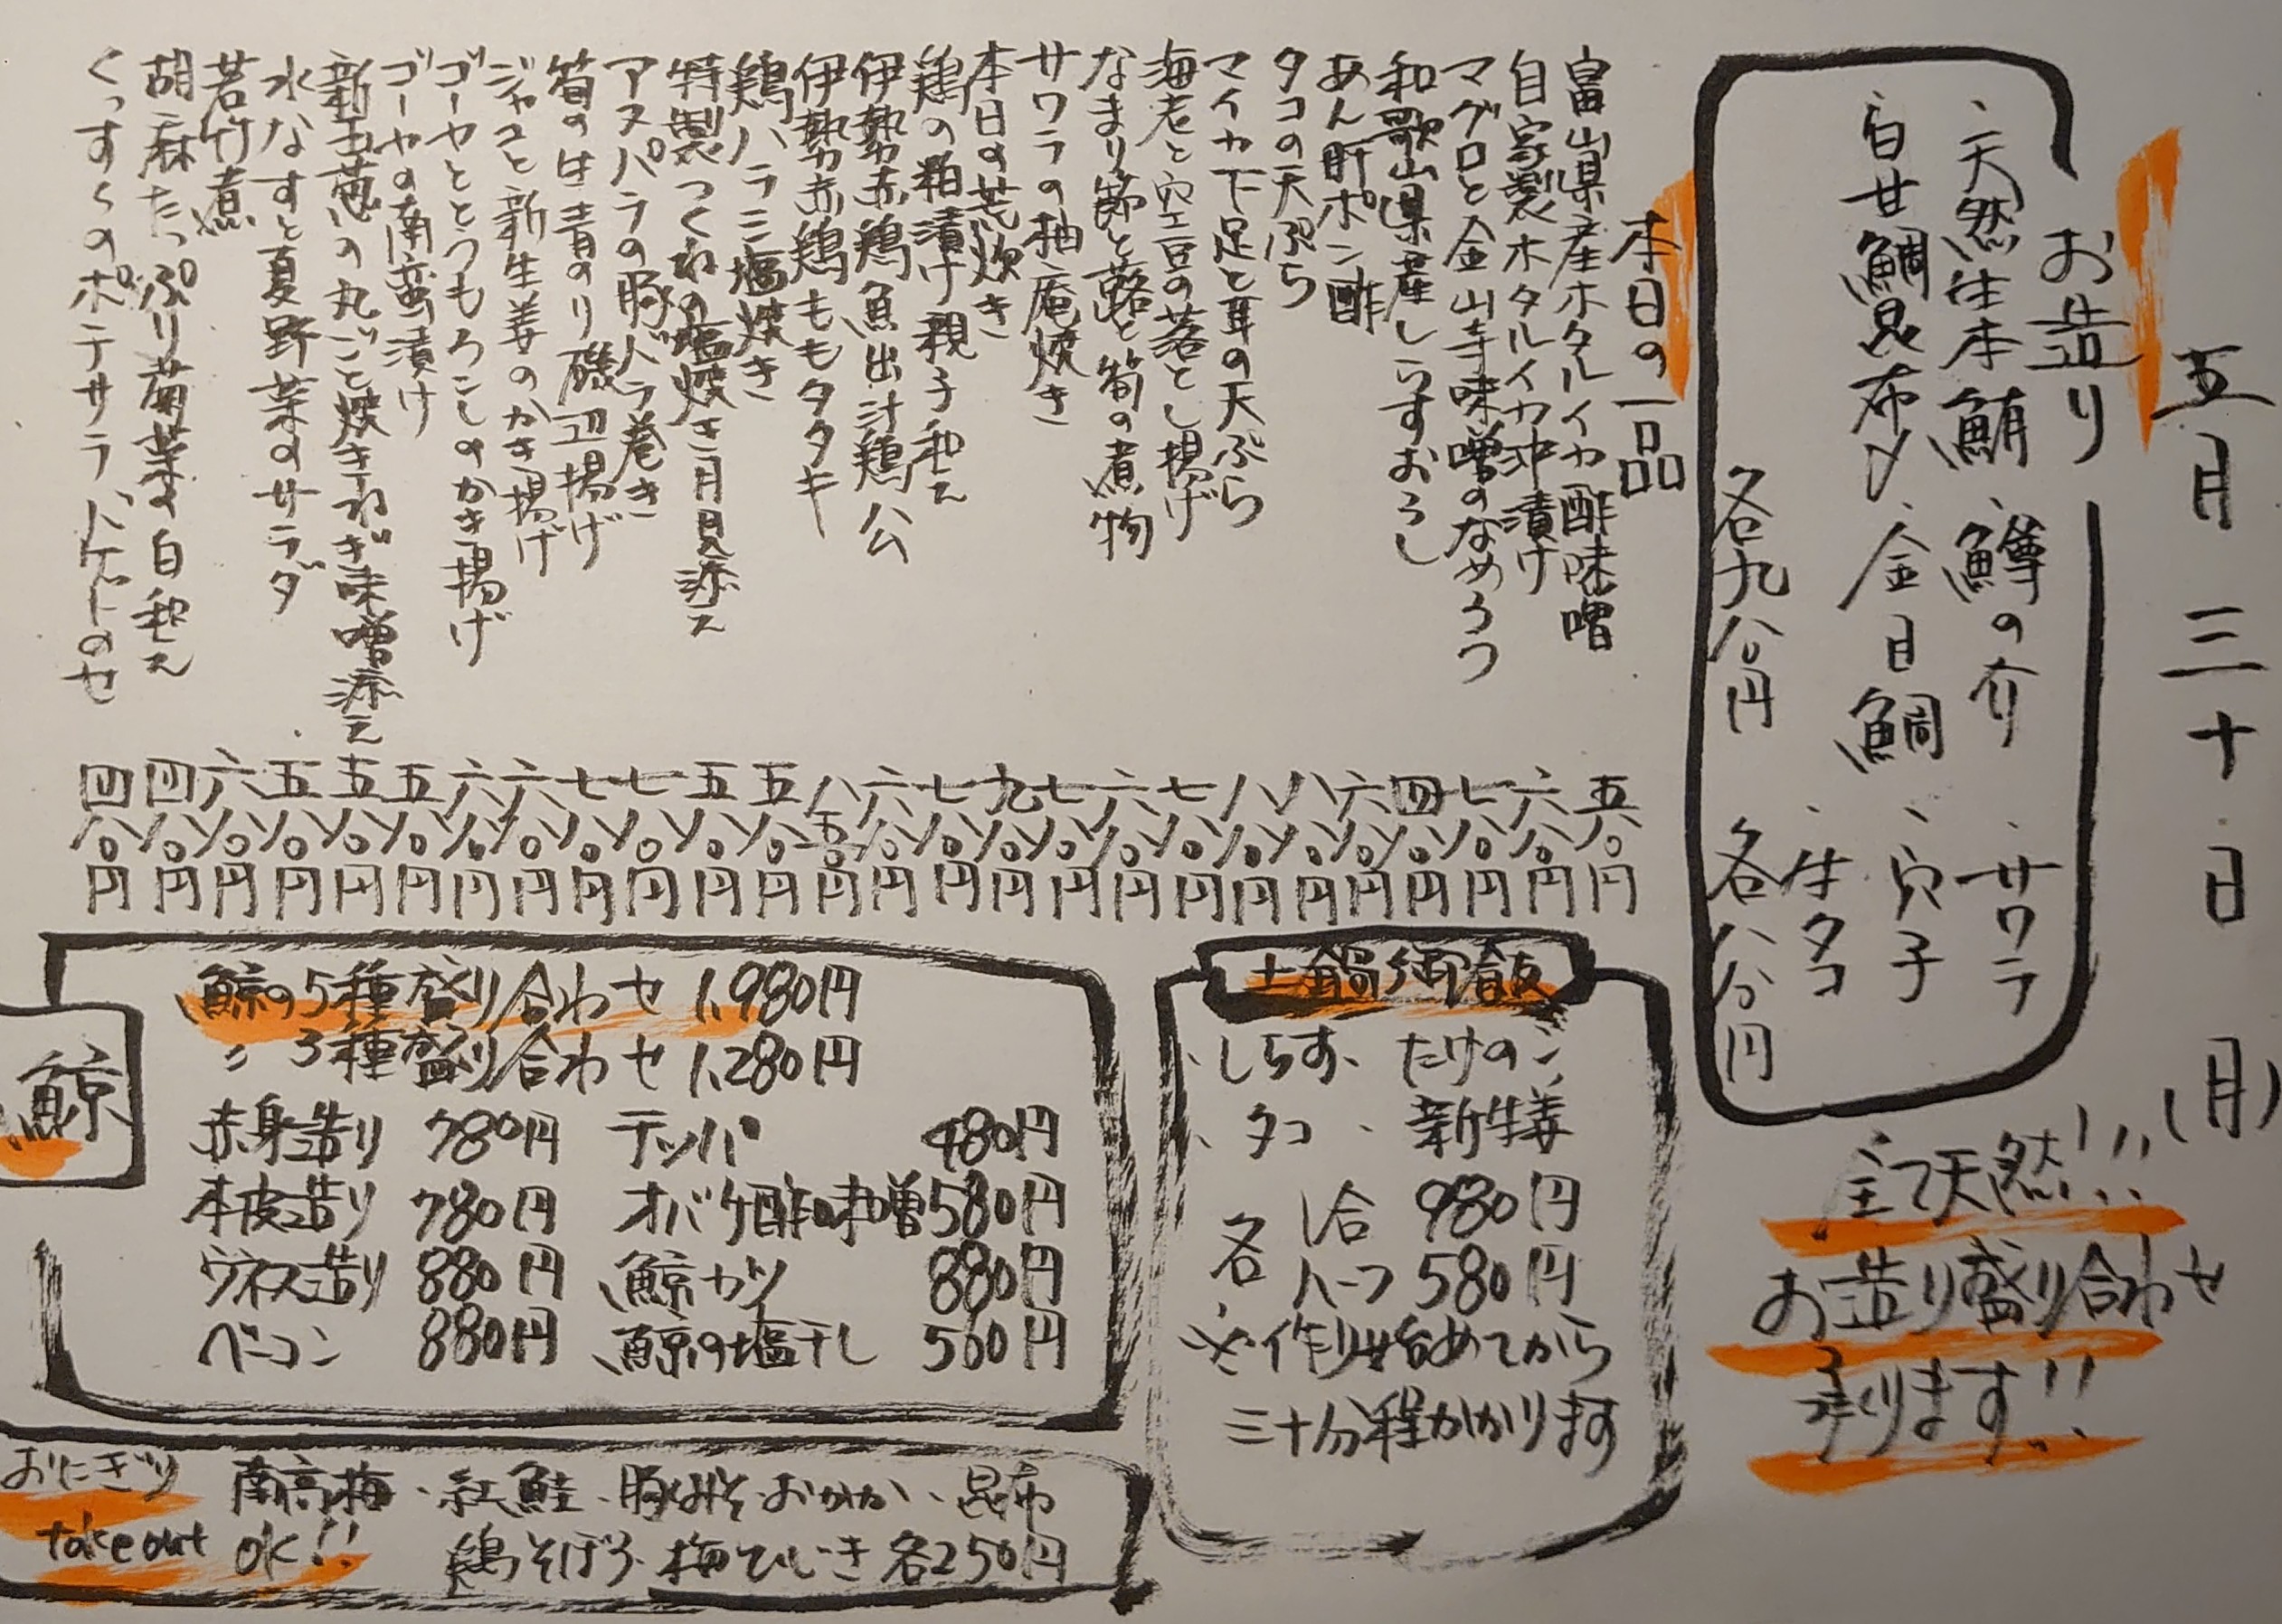 五月三十日(月)
お造り
、天然生本鮪、鱒の介、サワラ
、白甘鯛昆布〆、金目鯛、穴子
、生タコ
各九八〇円 各八八〇円
全て天然!!!
お造り盛り合わせ
承ります!!
本日の一品
富山県産ホタルイカ酢味噌 五八〇円
自家製ホタルイカ沖漬け 六八〇円
マグロと金山寺味噌のなめろう 七八〇円
和歌山県産しらすおろし 四八〇円
あん肝ポン酢 六八〇円
タコの天ぷら 八八〇円
マイカ下足と耳の天ぷら 八八〇円
海老と空豆の落とし揚げ 七八〇円
なまり節と蕗と筍の煮物 六八〇円
サワラの柚庵焼き 七八〇円
本日の荒炊き 九八〇円
鶏の粕漬け親子和え 七八〇円
伊勢赤鶏魚出汁鶏公 六八〇円
伊勢赤鶏ももタタキ 八五〇円
鶏ハラミ塩焼き 五八〇円
特製つくねの塩焼き月見添え 五八〇円
アスパラの豚バラ巻き 七八〇円
筍の生青のり磯辺揚げ 七八〇円
ジャコと新生姜のかき揚げ 六八〇円
ゴーヤととうもろこしのかき揚げ 六八〇円
ゴーヤの南蛮漬け 五八〇円
新玉葱の丸ごと焼きねぎ味噌添え 五八〇円
水なすと夏野菜のサラダ 五八〇円
若竹煮 六八〇円
胡麻たっぷり菊菜の白和え 四八〇円
くっすくのポテサラ バケットのせ 四八〇円
土鍋御飯
、しらす、たけのこ
、タコ、新生姜
各 1合 980円
ハーフ 580円
※作り始めてから
三十分程かかります
鯨
鯨の5種盛り合わせ 1,980円
〃 3種盛り合わせ 1,280円
赤身造り 780円 テッパ 480円
本皮造り 780円 オバケ酢味噌 580円
ウネス造り 880円 鯨カツ 880円
ベーコン 880円 鯨の塩干し 500円
おにぎり 南高梅、紅鮭、豚みそ、おかか、昆布
take out OK!! 鶏そぼろ、梅ひじき 各250円